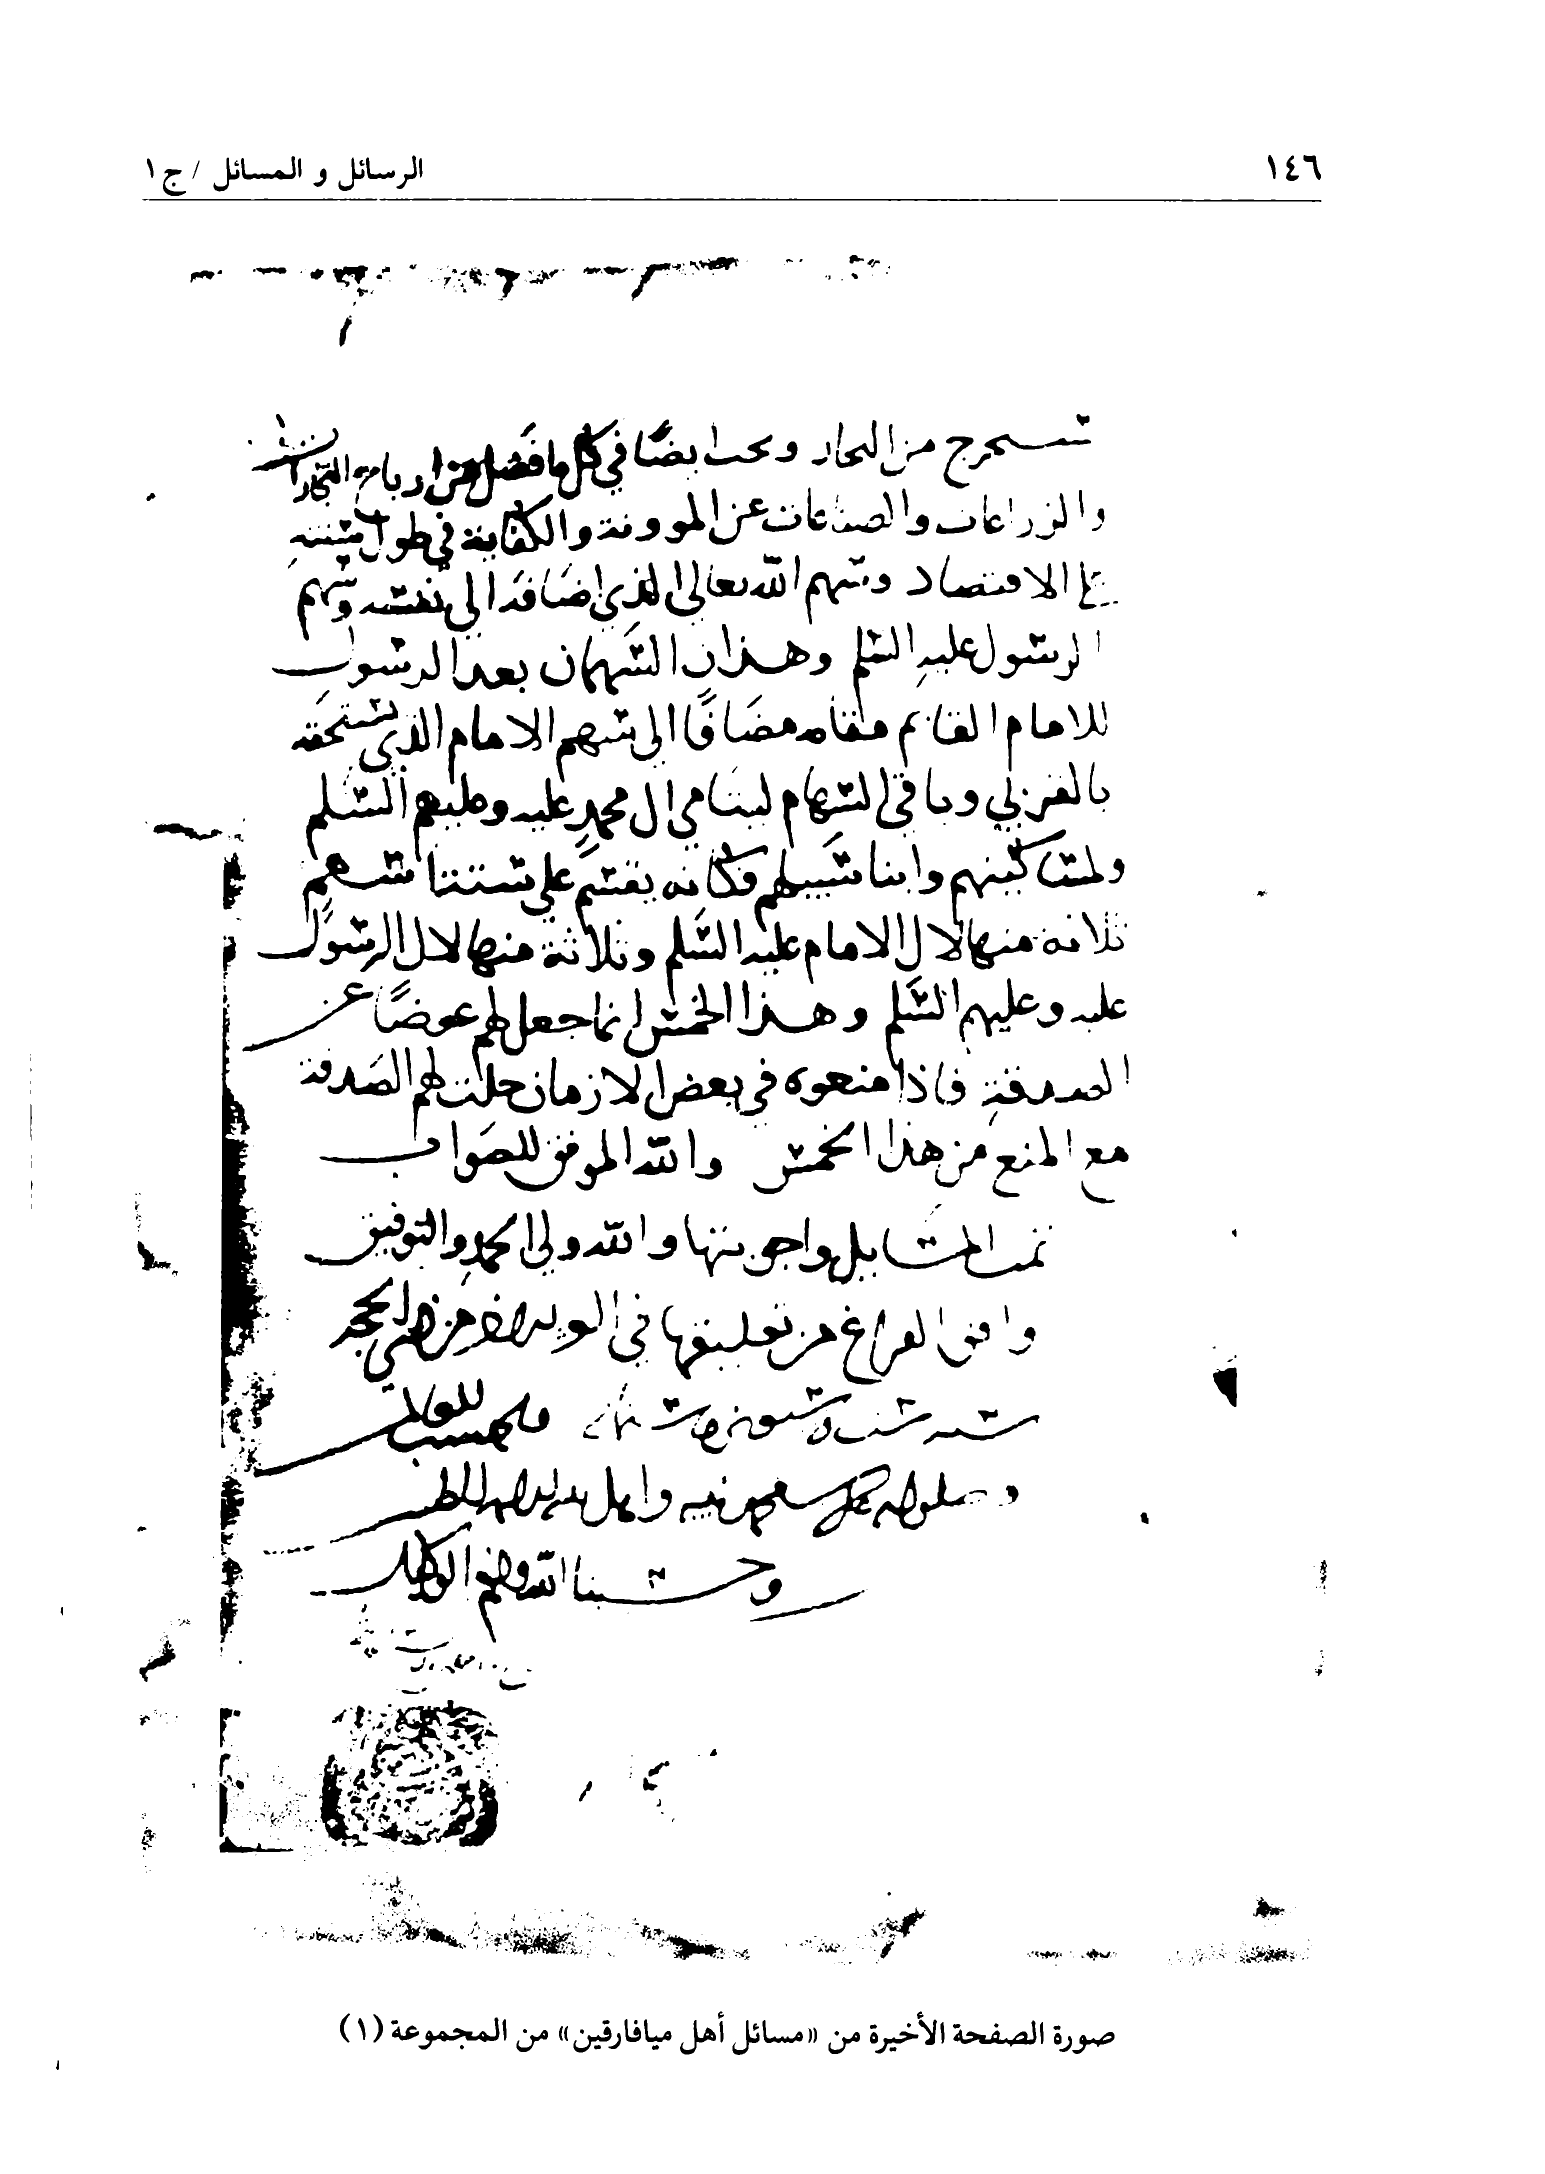 ١٤٦
الرسائل و المسائل / ج١
تستخرج من البحار ويجب ايضًا في كل ما فضل من ارباح التجارات
والزراعات والصناعات عن الموونة والكفاية في طول سنته
علي الاقتصاد وسهم الله تعالي الذي اضافه الي نفسه وسهم
الرسول عليه السلم وهذان السهمان بعد الرسول
للامام القايم مقامه مضافًا الي سهم الامام الذي يستحقه
بالقربي وباقي السهام ليتامي ال محمد عليه وعليهم السلم
ولمساكينهم وابنا سبيلهم فكانه يقسم علي ستة اسهم
ثلاثة منها لال الامام عليه السلم وثلاثة منها لال الرسول
عليه وعليهم السلم وهذا الخمس انما جعل لهم عوضًا عن
الصدقة فاذا منعوه في بعض الازمان حلت لهم الصدقة
مع المنع من هذا الخمس والله الموفق للصواب
تمت المسايل واجوبتها والله ولي الحمد والتوفيق
وافق الفراغ من تعليقها في من ذي الحجه
سنه ست وسبعين وستمائه
وصلواته علي نبيه
وحسبنا الله ونعم الوكيل
صورة الصفحة الأخيرة من «مسائل أهل ميافارقين» من المجموعة (١)